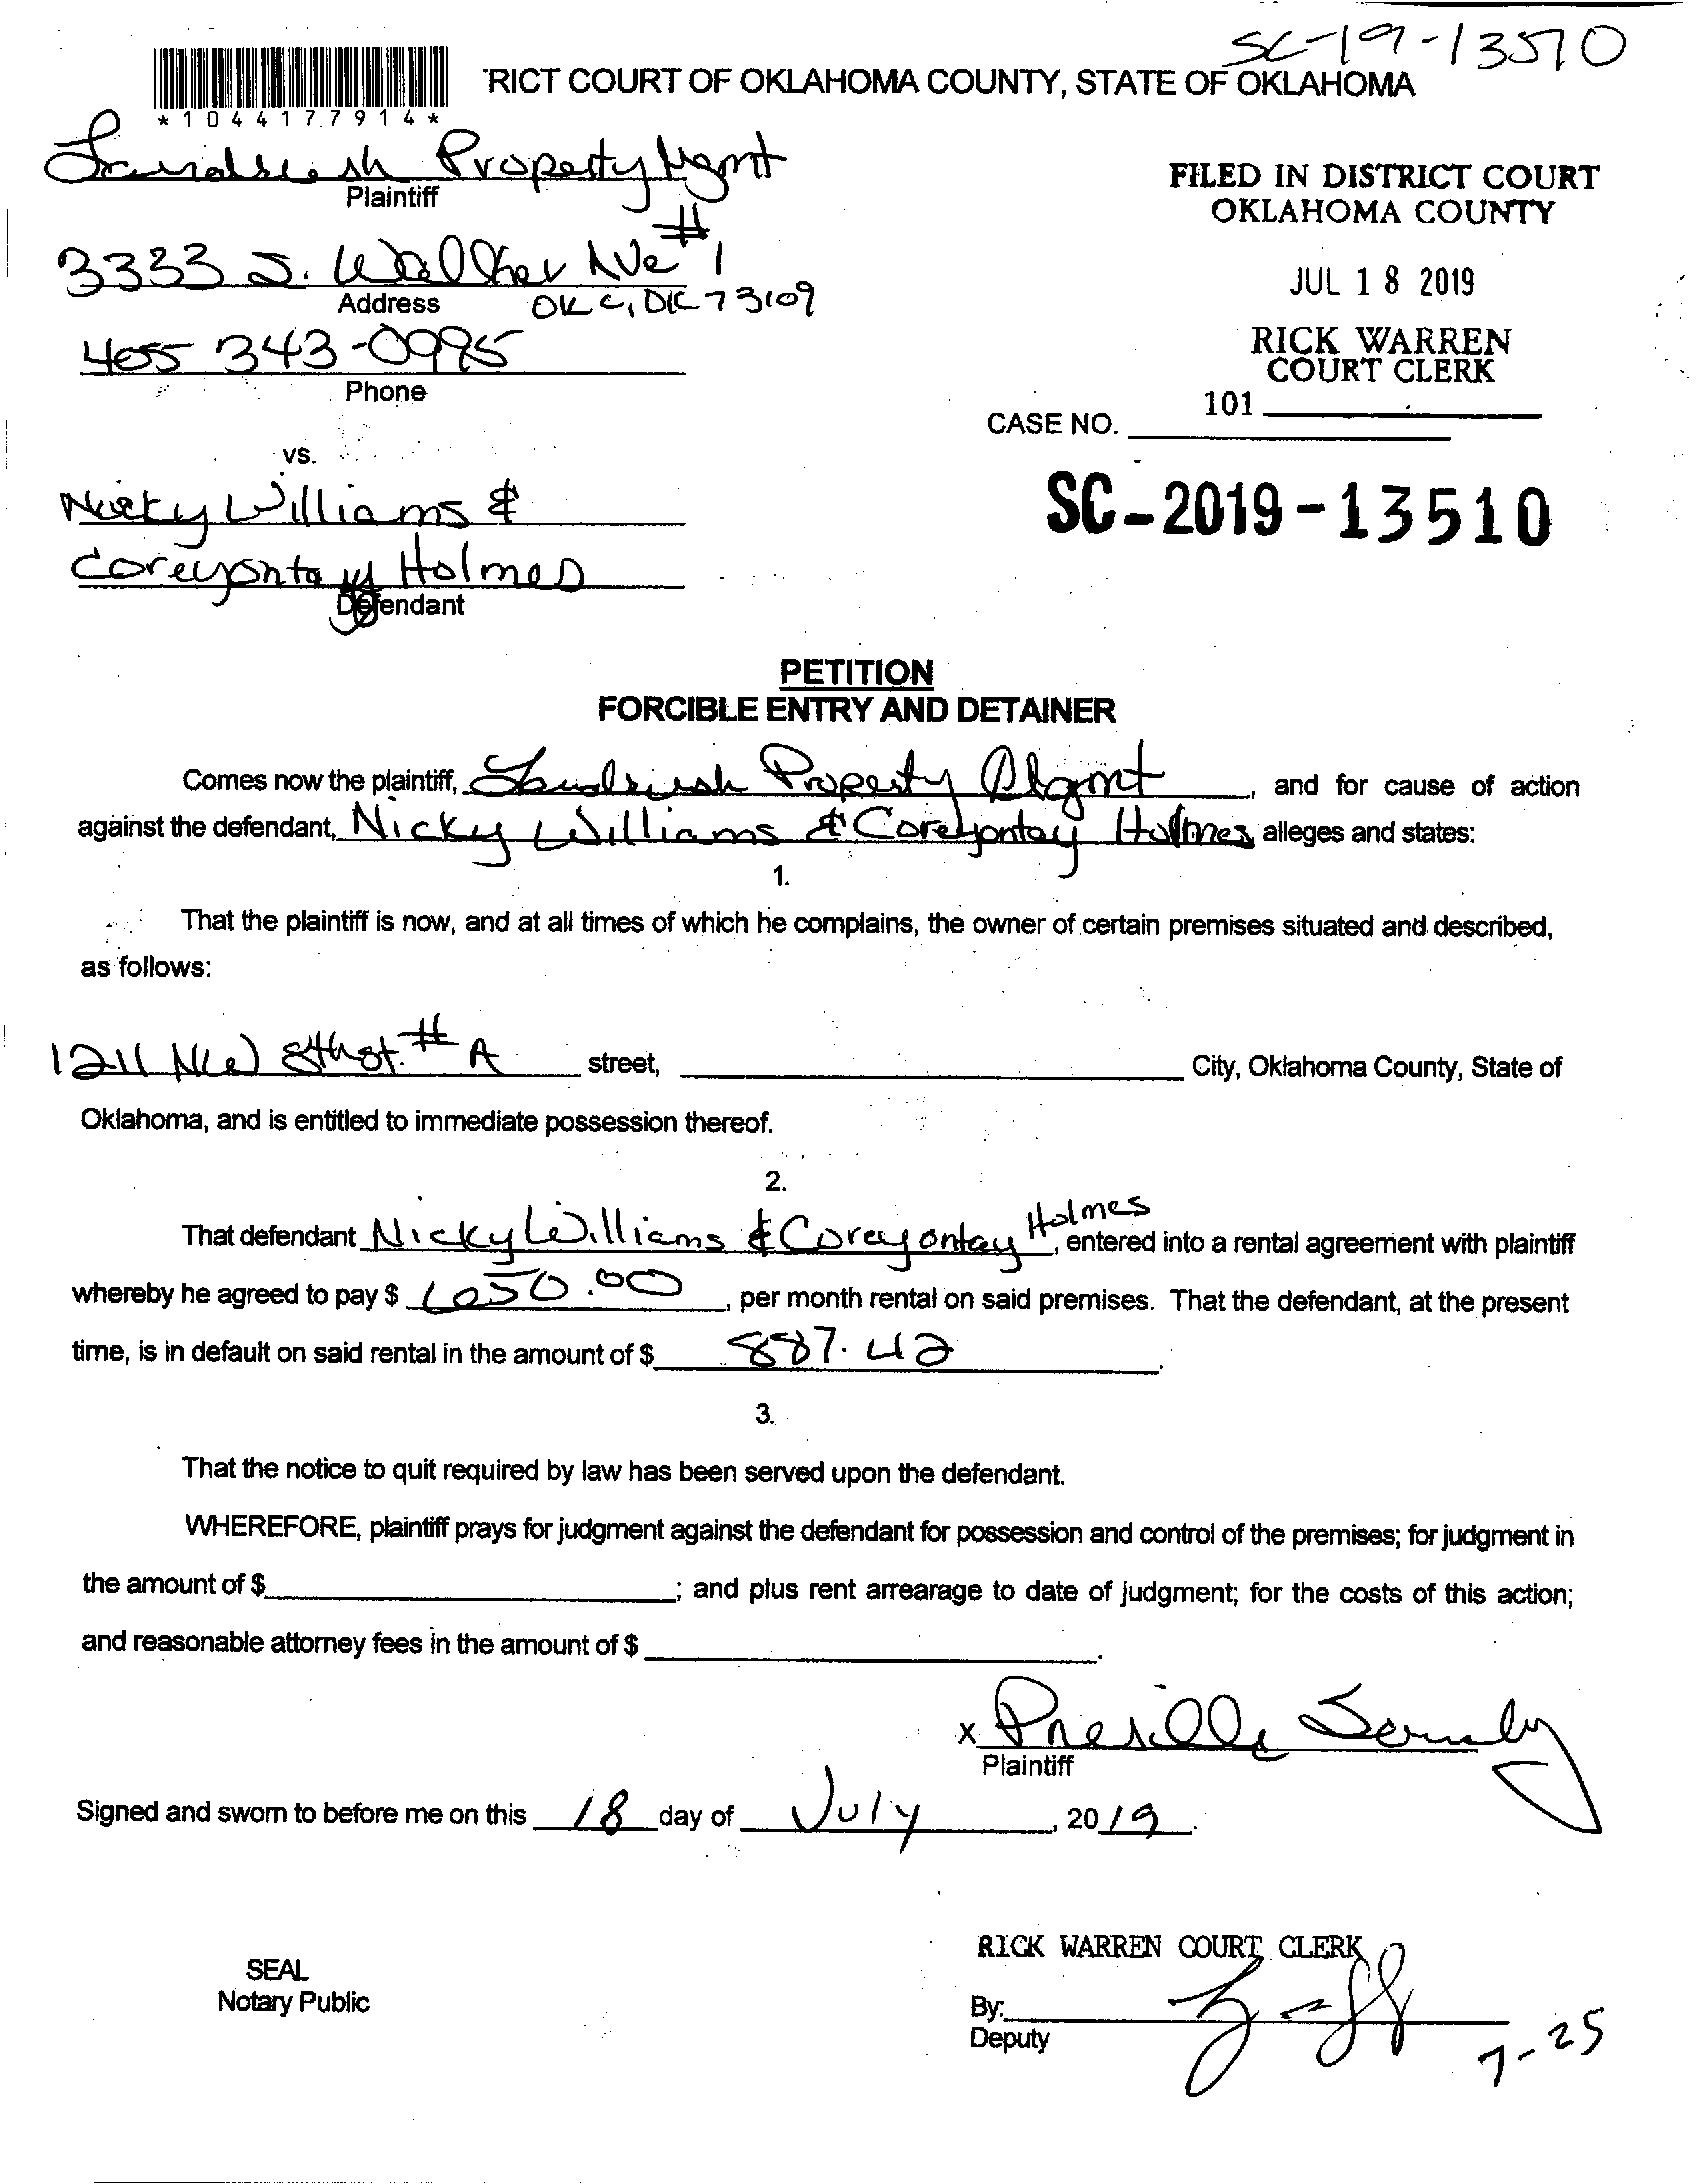 SC-19-13510
RICT COURT OF OKLAHOMA COUNTY, STATE OF OKLAHOMA
*1044177914*
Property Mgmt
Plaintiff
FILED IN DISTRICT COURT
OKLAHOMA COUNTY
JUL 18 2019
RICK WARREN
COURT CLERK
101
3333 S. Walker Ave #1
Address
OKC, OK 73109
405 343-0995
Phone
CASE NO.
vs.
SC-2019-13510
Nicky Williams &
Coreyontay Holmes
Defendant
PETITION
FORCIBLE ENTRY AND DETAINER
Comes now the plaintiff, Property Mgmt, and for cause of action
against the defendant, Nicky Williams & Coreyontay Holmes alleges and states:
1.
That the plaintiff is now, and at all times of which he complains, the owner of certain premises situated and described,
as follows:
1211 NW 8th st. # A street, City, Oklahoma County, State of
Oklahoma, and is entitled to immediate possession thereof.
2.
That defendant Nicky Williams & Coreyontay Holmes, entered into a rental agreement with plaintiff
whereby he agreed to pay $ 1050.00, per month rental on said premises. That the defendant, at the present
time, is in default on said rental in the amount of $ 887.42.
3.
That the notice to quit required by law has been served upon the defendant.
WHEREFORE, plaintiff prays for judgment against the defendant for possession and control of the premises; for judgment in
the amount of $; and plus rent arrearage to date of judgment; for the costs of this action;
and reasonable attorney fees in the amount of $.
x
Plaintiff
Signed and sworn to before me on this 18 day of July, 2019.
RICK WARREN COURT CLERK
SEAL
Notary Public
By:
Deputy
7-25